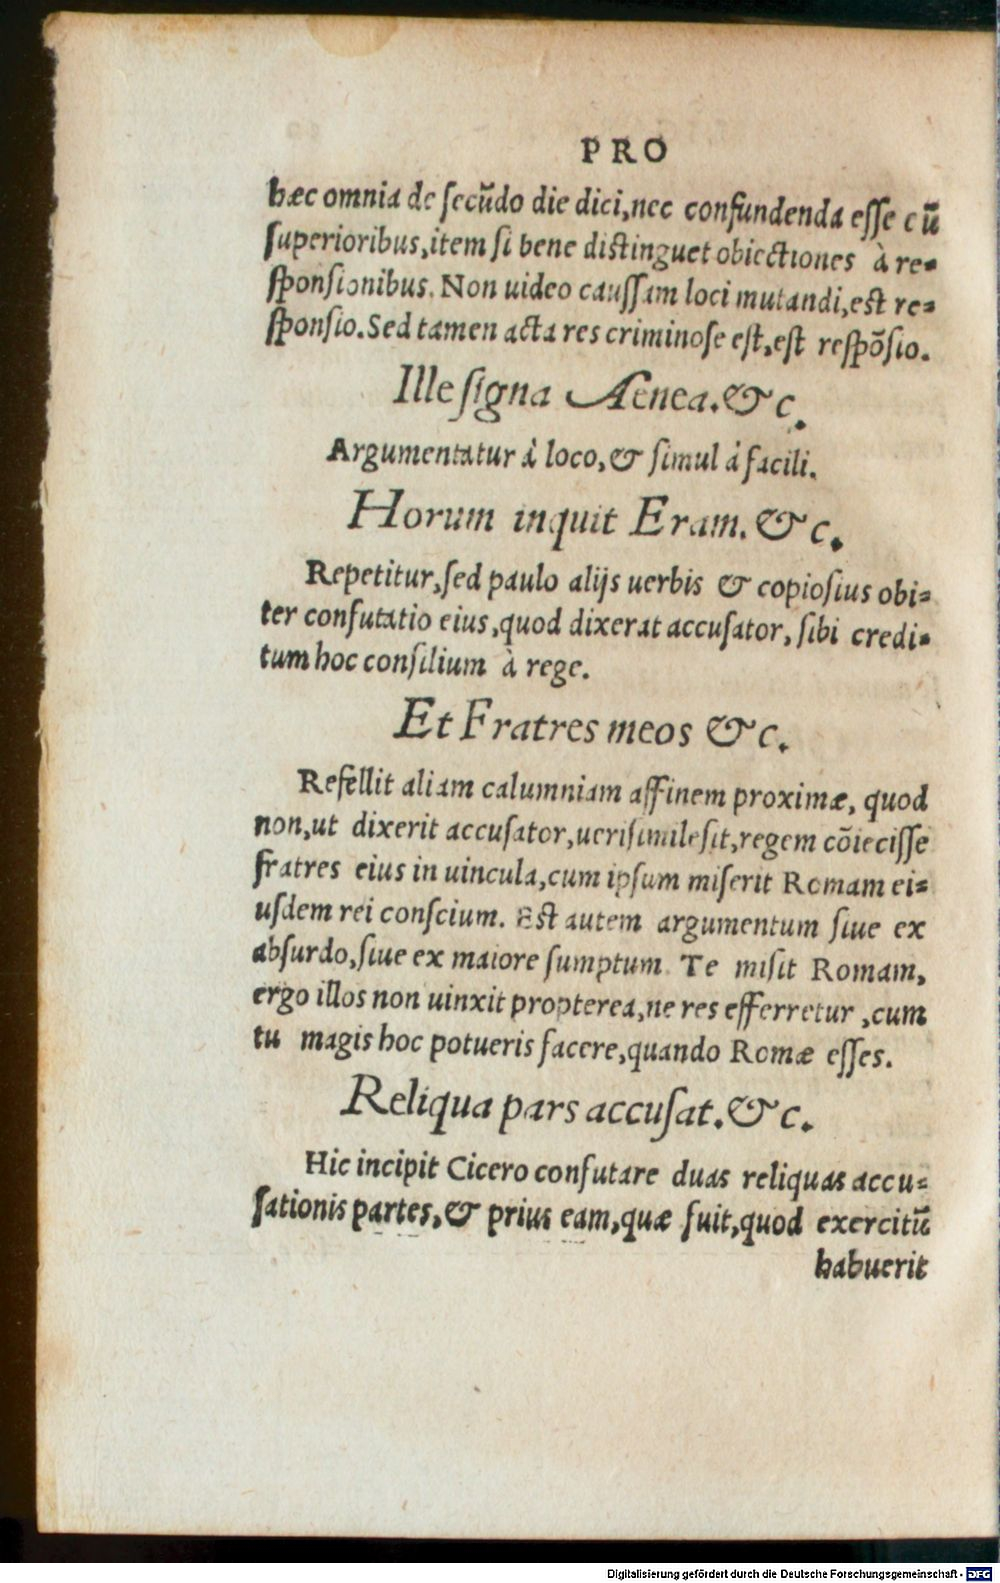 PRO
hæc omnia de secũdo die dici, nec confundenda esse cũ
superioribus, item si bene distinguet obiectiones à re=
sponsionibus. Non uideo caussam loci mutandi, est re=
sponsio. Sed tamen acta res criminose est, est respõsio.
Ille signa Aenea. &c.
Argumentatur à loco, & simul à facili.
Horum inquit Eram. &c.
Repetitur, sed paulo alijs uerbis & copiosius obi=
ter confutatio eius, quod dixerat accusator, sibi credi=
tum hoc consilium à rege.
Et Fratres meos &c.
Refellit aliam calumniam affinem proximæ, quod
non, ut dixerit accusator, uerisimile sit, regem cõiecisse
fratres eius in uincula, cum ipsum miserit Romam ei=
usdem rei conscium. Est autem argumentum siue ex
absurdo, siue ex maiore sumptum. Te misit Romam,
ergo illos non uinxit propterea, ne res efferretur, cum
tu magis hoc potueris facere, quando Romæ esses.
Reliqua pars accusat. &c.
Hic incipit Cicero confutare duas reliquas accu=
sationis partes, & prius eam, quæ fuit, quod exercitũ
habuerit
Digitalisierung gefördert durch die Deutsche Forschungsgemeinschaft - DFG